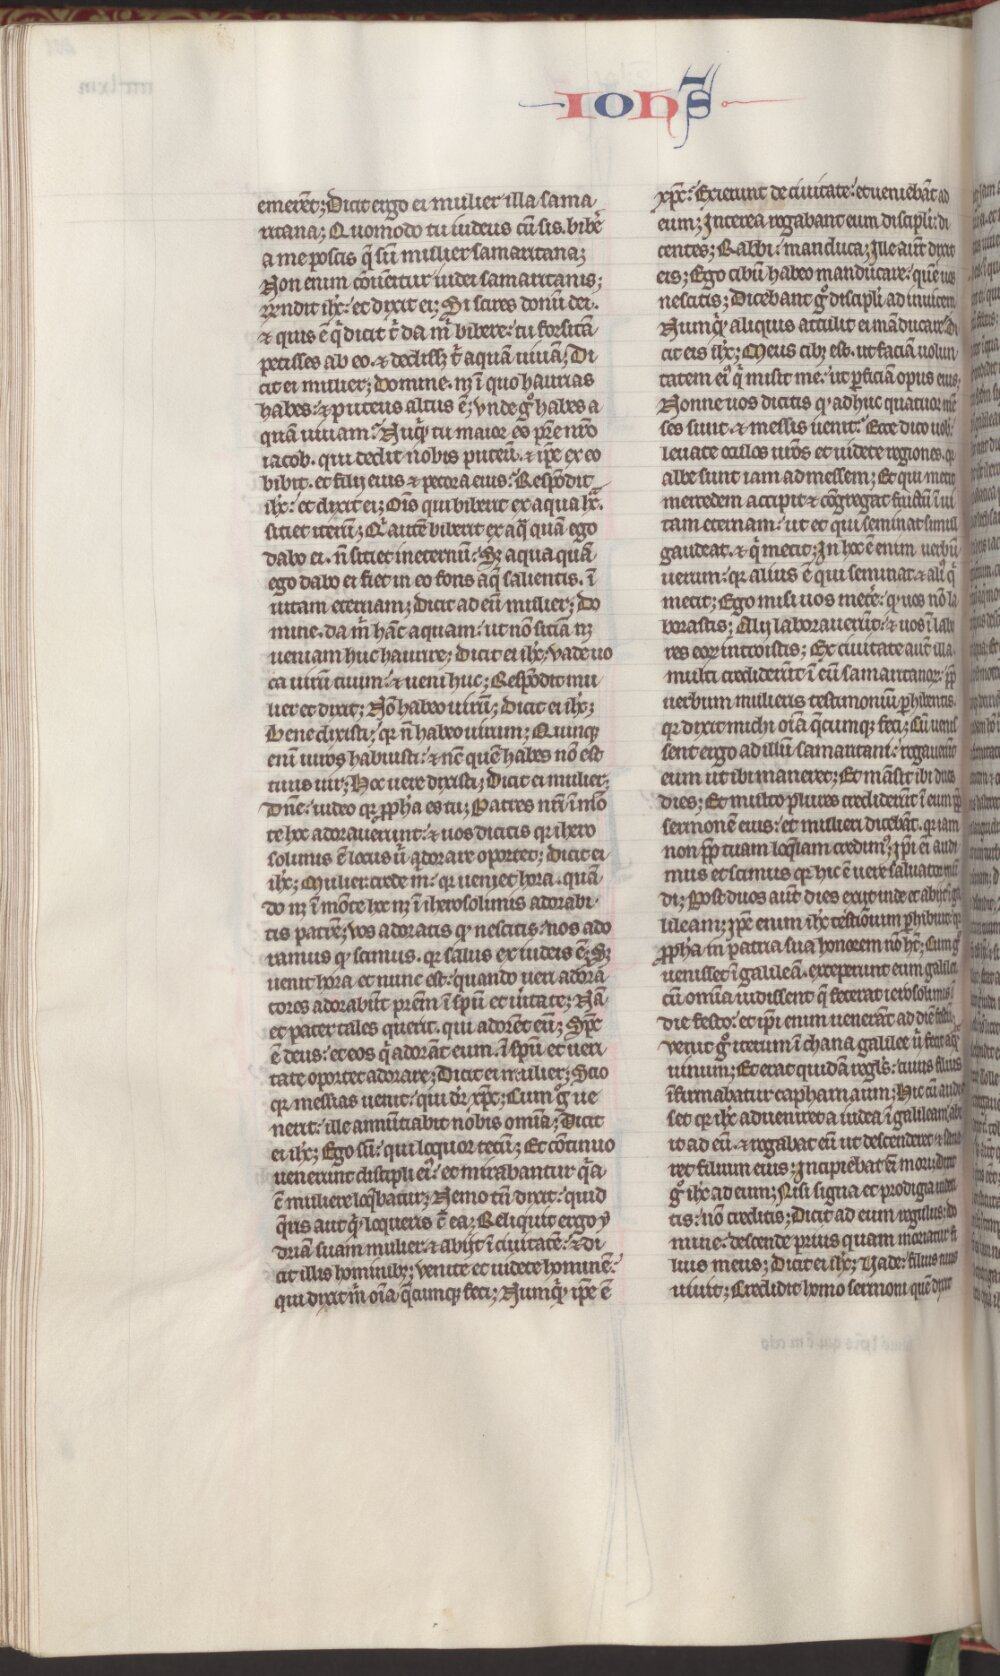 ioh̅s
emere̅t; Dicit ergo ei mulier illa sama
ritana; Quomodo tu iudeus cu̅ sis. bibe̅
a me poscis q̅ su̅ mulier samaritana;
Non enim co̅uentur iudei samaritanis;
Rn̅dit ih̅c: et dixit ei; Si scires donu̅ dei.
& quis e̅ q̅ dicit t̅ da m̅ bibere: tu forsita̅
petisses ab eo. & dediss3 t̅ aqua̅ uiua̅; Di
cit ei mulier; Domine. n3 i̅ quo haurias
habes: & puteus altus e̅; Vnde gͦ habes a
qua̅ uiuam? Nu̅q̅ tu maior es pr̅e nr̅o
iacob. qui dedit nobis puteu̅. & ip̅e ex eo
bibit. et filij eius & pecora eius? Respo̅dit
ih̅c: et dixit ei; Om̅s qui biberit ex aqua h̅c.
sitiet iteru̅; Qi aute̅ biberit ex aq̅ qua̅ ego
dabo ei. n̅ sitiet in eternu̅: S3 aqua qua̅
ego dabo ei fiet in eo fons aq̅ salientis. i̅
uitam eternam; Dicit ad eu̅ mulier; Do
mine. da m̅ ha̅c aquam: ut no̅ sitia̅ n3
ueniam huc haurire; Dicit ei ih̅c; Vade uo
ca uiru̅ tuum: & ueni huc; Respo̅dit mu
lier et dixit; No̅ habeo uiru̅; Dicit ei ih̅c;
Bene dixisti; qr n̅ habeo uirum; Quinq3
eni̅ uiros habuisti: & nc̅ que̅ habes no̅ est
tuus uir; Hoc uere dixisti; Dicit ei mulier;
Dn̅e: uideo qr pp̅ha es tu; Patres nr̅i i̅ mo̅
te hoc adorauerunt: & uos dicitis qr ihero
solimis e̅ locus u̅ adorare oportet; Dicit ei
ih̅c; Mulier crede m̅: qr ueniet hora. qua̅
do n3 i̅ mo̅te hoc n3 i̅ iherosolimis adorabi
tis patre̅; Vos adoratis q̅ nescitis: nos ado
ramus q̅ scimus. qr salus ex iudeis e̅; S3
uenit hora et nunc est: quando ueri adora̅
tores adorabu̅t pr̅em i̅ sp̅u et u̅itate; Na̅
et pater tales querit. qui adore̅t eu̅; Sp̅c
e̅ deus: et eos q̅ adora̅t eum. i̅ sp̅u et ueri
tate oportet adorare; Dicit ei mulier; Scio
qr messias uenit: qui dr̅ xp̅c; Cum gͦ ue
nerit: ille annu̅tiabit nobis omnia; Dicit
ei ih̅c; Ego su̅: qui loquor tecu̅; Et co̅tinuo
uenerunt discipli ei9: et mirabantur q̅a
c̅ muliere loq̅batur; Nemo tn̅ dixit: quid
q̅ris aut q̅ loqueris c̅ ea; Reliquit ergo y
driam suam mulier & abijt i̅ ciuitate̅: & di
cit illis hominib3; Venite et uidete homine̅:
qui dixit m̅ oi̅a q̅cumq3 feci; Numq̅ ip̅e e̅
xp̅c? Exierunt de ciuitate: et uenieba̅t ad
eum; Interea rogabant eum discipl̅i: di
centes; Rabbi: manduca; Ille aut̅ dixit
eis; Ego cibu̅ habeo manducare: que̅ uos
nescitis; Dicebant gͦ discipl̅i ad inuicem
Numq̅ aliquis attulit ei ma̅ducare? Di
cit eis ih̅c; Meus cib3 est. ut facia̅ uolun
tatem ei9 q̅ misit me: ut p̅ficia̅ opus eius;
Nonne uos dicitis q̅ adhuc quatuor me̅
ses sunt. & messis uenit? Ecce dico uob̅.
leuate oculos ur̅os et uidete regiones. qr
albe sunt iam ad messem; Et qui metit
mercedem accipit & co̅gregat fructu̅ i̅ ui
tam eternam: ut et qui seminat simul
gaudeat. & q̅ metit; In hoc e̅ enim uerbu̅
uerum: qr alius e̅ qui seminat. & ali9 q̅
metit; Ego misi uos mete̅: q̅ uos no̅ la
borastis; Alij laborauerunt: & uos i̅ labo
res eor̅ introistis; Ex ciuitate aut̅ illa.
multi crediderunt i̅ eu̅ samaritanor̅: pp̅
uerbum mulieris testimoniu̅ p̅hibentis.
qr dixit michi oi̅a q̅cumq3 feci; Cu̅ uenis
sent ergo ad illu̅ samaritani: rogauerunt
eum ut ibi maneret; Et ma̅sit ibi duos
dies; Et multo plures crediderunt i̅ eum pp̅
sermone̅ eius: et mulieri diceba̅t. qr iam
non pp̅ tuam loq̅lam credim9; Ip̅i ei̅ audi
mus et scimus qr hic e̅ uere saluator mu̅
di; Post duos aut̅ dies exijt inde et abijt i̅ ga
lileam; Ip̅e enim ih̅c testio̅ium p̅hibuit: qr
pp̅ha in patria sua honorem no̅ h̅t; Cum gͦ
uenisset i̅ galilea̅. exceperunt eum galilei
cu̅ omnia uidissent q̅ fecerat ierosolimis i̅
die festo: et ip̅i enim uenera̅t ad die̅ festu̅;
Venit gͦ iterum i̅ chana galilee u̅ fecit aq̅
uinum; Et erat quida̅ regl̅s: cuius filius
i̅firmabatur capharnaum; Hic cu̅ audis
set qr ih̅c adueniret a iudea i̅ galileam abi
it ad eu̅. & rogabat eu̅ ut descenderet. & sana
ret filium eius: Incipiebat ei̅ mori; Dixit
gͦ ih̅c ad eum; Nisi signa et prodigia uide
tis: no̅ creditis; Dicit ad eum regulus: do
mine: descende prius quam moriatur fi
lius meus; Dicit ei ih̅c; Vade: filius tuus
uiuit; Credidit homo sermoni que̅ dixit